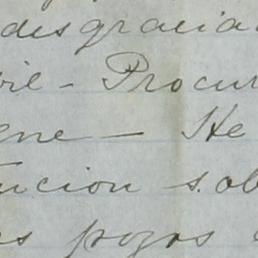 desgracia
vil - Procur
ene - He
ucion sob
es pozos